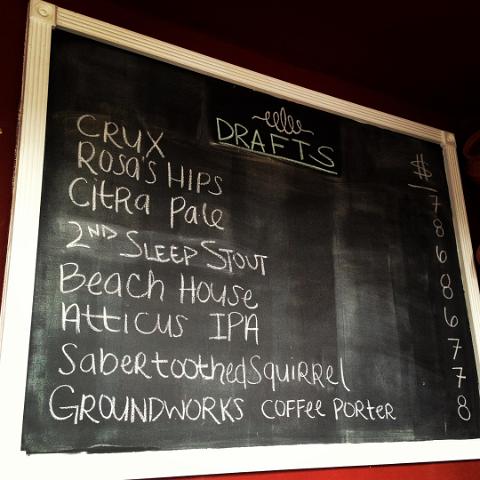 DRAFTS
$
CRUX 7
ROSA'S HIPS 8
CitRa Pale 6
2ND SLEEP STOUT 8
Beach House 6
Atticus IPA 7
SabertoothedSquirrel 7
GROUNDWORKS COFFEE PORTER 8